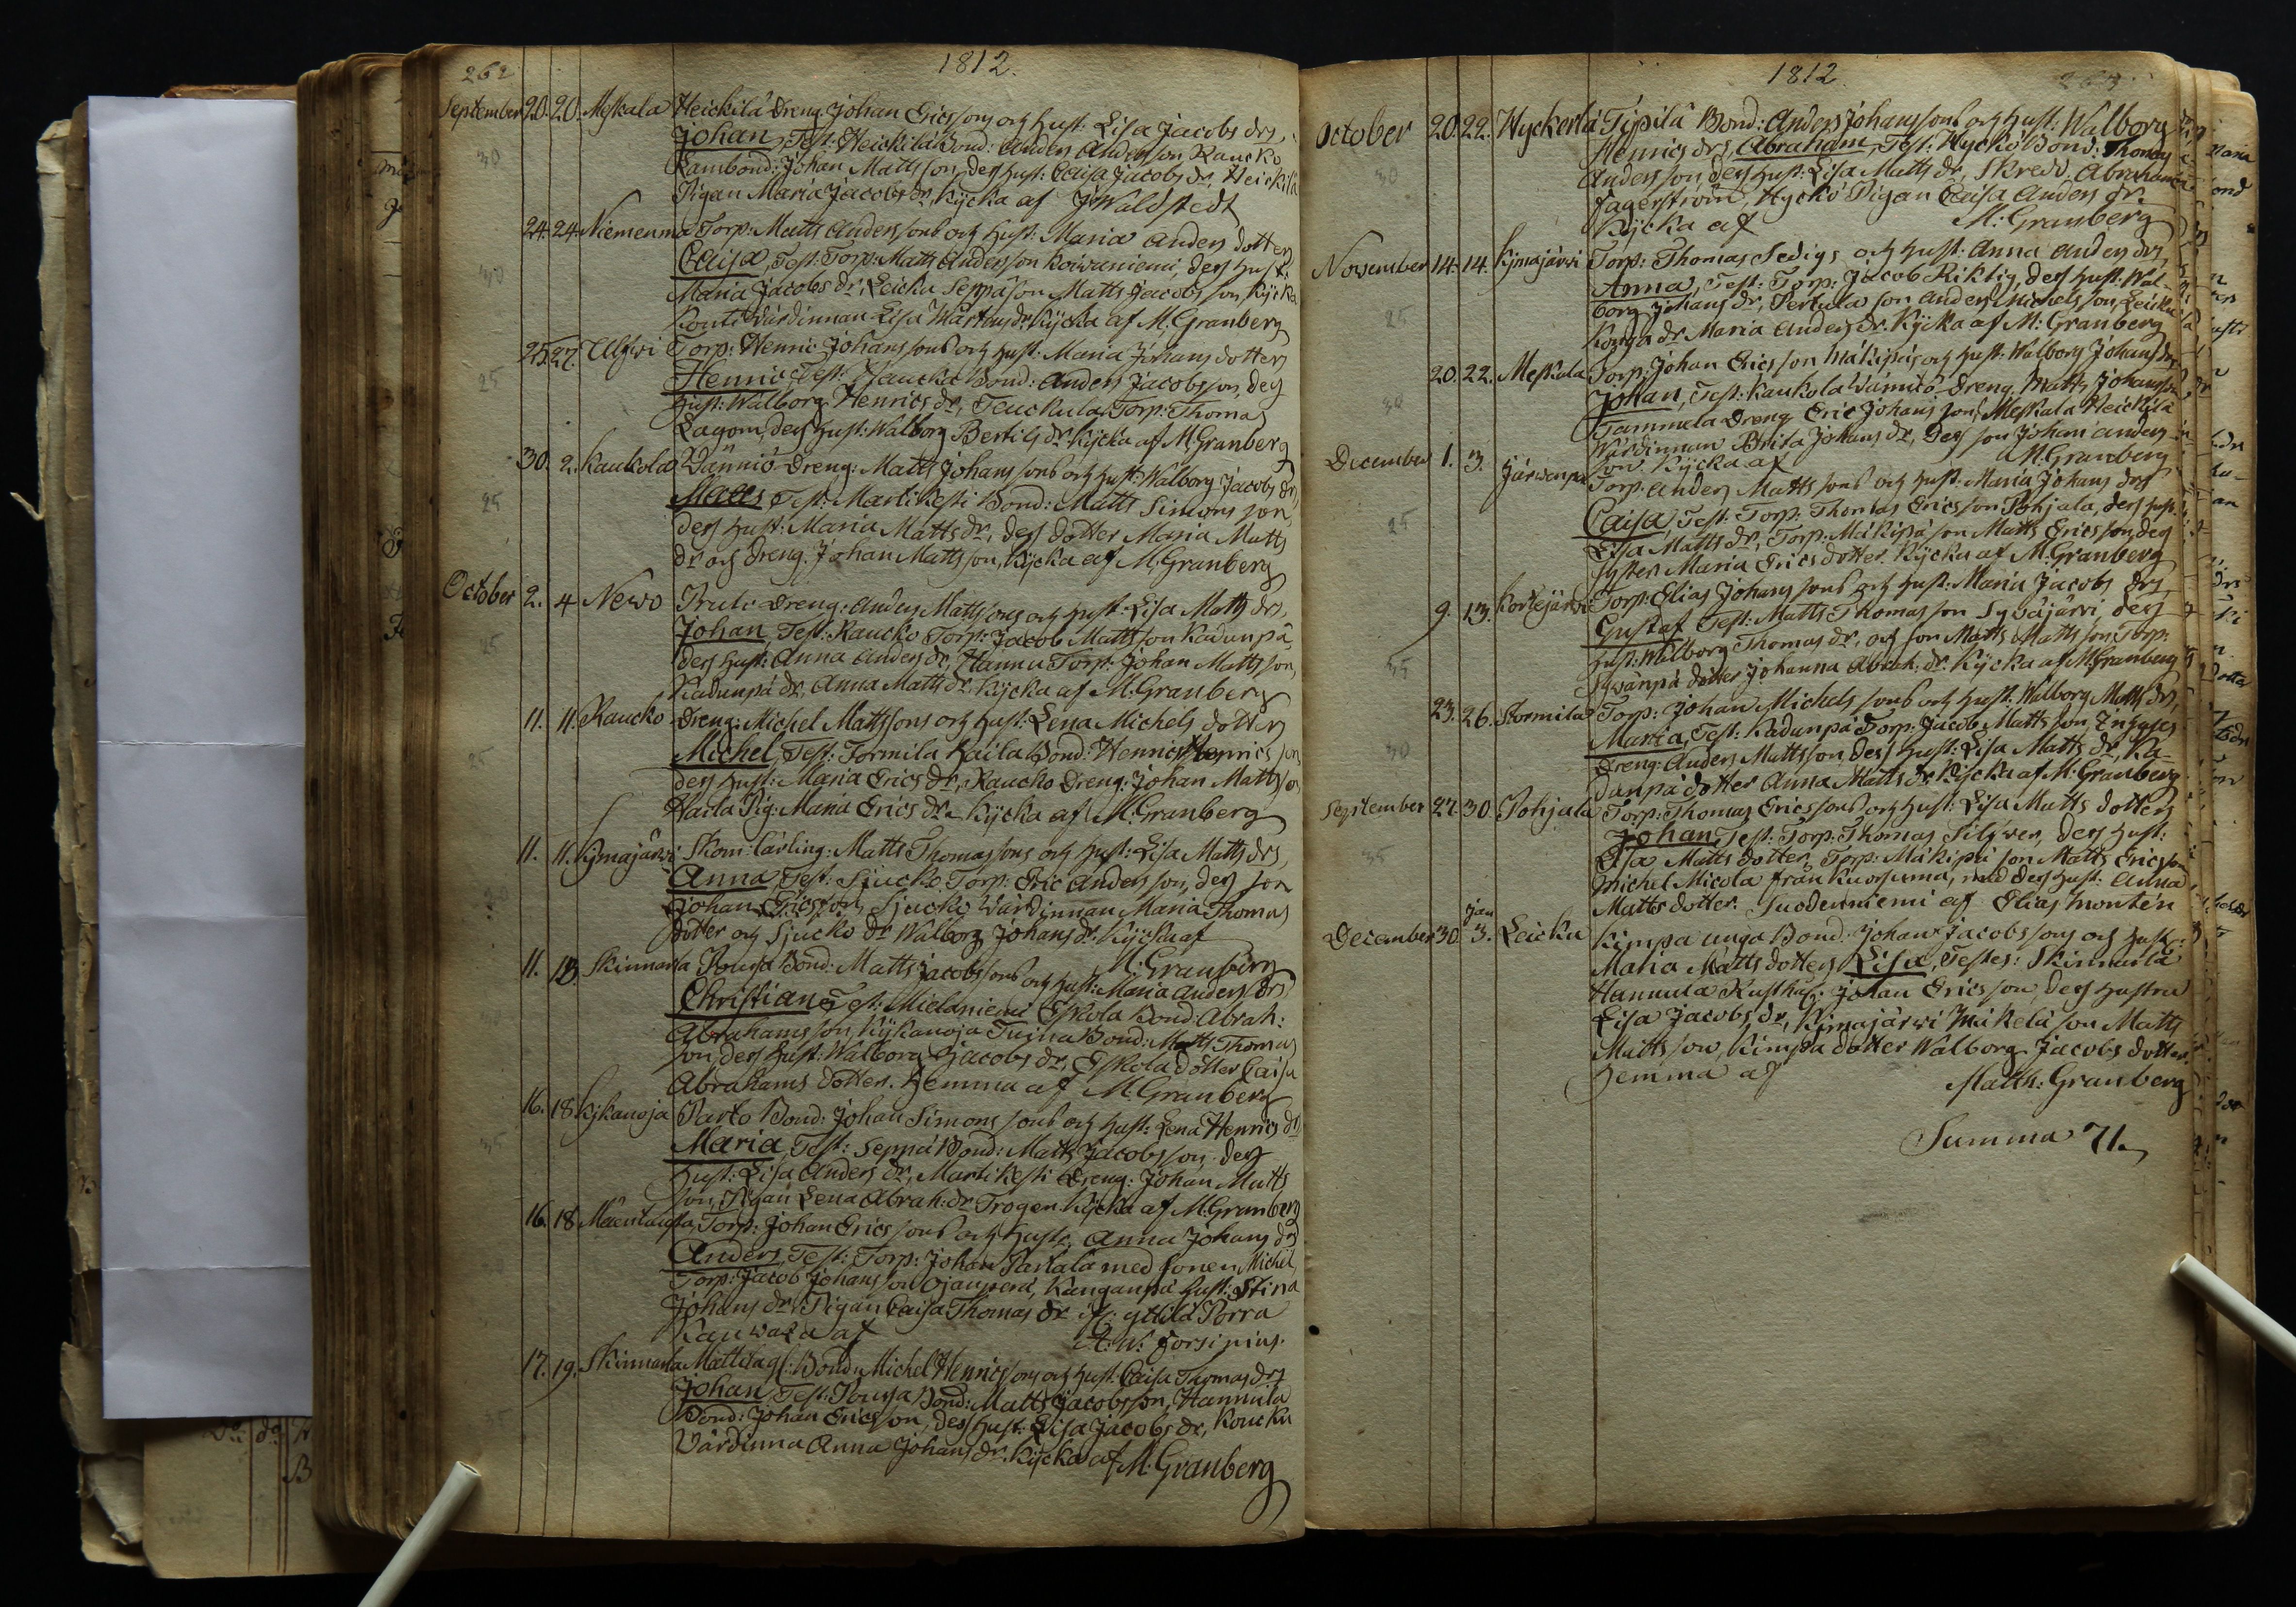 262
1812.
September 20. 20. Meskala Heickilä Dreng Johan Ericssons och hust: Lisa Jacobs drs,
Johan, Test: Heickilä Bond: Anders Andersson, Raucko
Rambond: Johan Matts son, dess hust: Caisa Jacobs dr, Heickilä
Pigan Maria Jacobs dr, Kycka af J. Waldstedt
30
24. 24. Niemenma Torp: Matts Anders sons och hust: Maria Anders dotters
Caisa, Test: Torp: Matts Andersson Koivaniemi, dess hust:
Maria Jacobs dr, Leicku Seppä son Matts Jacobs son, Kycka
Kouti värdinnan Lisa Mårtens dr Kycka af M. Granberg
30
25. 27. Torp: Henric Johans sons och hust: Maria Johans dotters
Henric, Test: Bond: Anders Jacobsson, dess
hust: Walborg Henrics dr, Teuckula Torp: Thomas
Lagom, dess hust: Walborg Bertils dr Kycka af M. Granberg
25
30. 2. Kaukola Wännio Dreng: Matts Johans sons och hust: Walborg Jacobs drs
Matts, Test: Martikesti Bond: Matts Simons son
dess hust: Maria Matts dr, dess dotter Maria Matts
dr och Dreng. Johan Matts son, Kycka af M. Granberg
25
October 2. 4 Newo Pruti Dreng: Anders Mattssons och hust: Lisa Matts drs,
Johan, Test: Raucko Torp: Jacob Matts son Kadunpä
dess hust: Anna Anders dr, Hannu Torp: Johan Matts son,
Kadunpä dr, Anna Matts dr Kycka af M. Granberg
25
11. 11. Raucko Dreng: Michel Mattssons och hust: Lena Michels dotters
Michel, Test: Tormila Kaila Bond: Henric Henrics son
dess hust: Maria Erics dr, Raucko Dreng: Johan Matts son
Kaila Pig: Maria Erics dr Kycka af M. Granberg
25
11. 11. Kymajärvi Skom: lärling: Matts Thomassons och hust: Lisa Matts drs,
Anna, Test: Sjucko Torp: Eric Anders son, dess son
Johan Ericsson, Sjucko Värdinnan Maria Thomas
dotter och Sjucko dr Walborg Johans dr Kycka af
M. Granberg
11. 13. Skinnarla Pousa Bond: Matts Jacobs sons och hust: Maria Anders drs
Christian, Test: Mielaniemi Eskola Bond: Abrah:
Abrahams son, Kykanoja Bond: Matts Thomas
son, dess hust: Walborg Jacobs dr, Eskola dotter Caisa
Abrahams dotter. hemma af M. Granberg
16. 18 Kykanoja Parto Bond: Johan Simons sons och hust: Lena Henrics drs
Maria, Test: Seppä Bond: Matts Jacobsson, dess
hust: Lisa Anders dr, Martikesti Dreng: Johan Matts
son, Pigan Lena Abrah: dr Trogen. Kycka af M. Granberg
35
16. 18 Mäentausta, Torp: Johan Erics sons och hust: Anna Johans drs
Anders, Test: Torp: Johan Partala med sonen Michel,
Torp: Jacob Johans son Ojanperä, Kanganpä hust: Stina
Johans dr, Pigan Caisa Thomas dr Porra
af A. W. Forsinius.
17. 19. Skinnarla Mattila Bond: Michel Henrics sons och hust: Caisa Thomas drs
Johan, Test: Pousa Bond: Matts Jacobsson, Hannula
Bond: Johan Ericsson, dess hust: Lisa Jacobs dr, Koucku
Värdinna Anna Johans dr. Kycka af M. Granberg
1812
263
October 20. 22. Hyckerlä Tipilä Bond: Anders Johans sons och hust: Walborg
Henrics drs, Abraham, Test: Hyckö Bond: Thomas
Anders son, dess hust: Lisa Matts dr, Skredd. Abraham
Fagerström, Hyckö Pigan Caisa Anders dr.
Kycka af M. Granberg
30
November 14. 14. Kymajärvi Torp: Thomas Sedigs och hust: Anna Anders drs,
Anna, Test: Torp: Jacob Riktig, dess hust: Wal-
borg Johans dr, Pertula son Anders Michelsson, Leicku
Konga dr Maria Anders dr. Kycka af M. Granberg
25
20. 22. Meskala Torp: Johan Erics son Mäkipäs och hust: Walborg Johans drs,
Johan, Test: Kaukola Wännio Dreng Matts Johansson
Tammela Dreng Eric Johans son, Meskala Heickilä
Wärdinnan Brita Johans dr, dess son Johan Anders
son Kycka af M. Granberg
30
December 1. 3. Järwenpä Torp: Anders Matts sons och hust: Maria Johans drs
Caisa, Test: Torp: Thomas Ericsson Pohjala, dess hust:
Lisa Matts dr, Torp: Mäkipä son Matts Ericsson, dess
syster Maria Erics dotter. Kycka af M. Granberg
25
9. 13. Kortejärvi Torp: Elias Johans sons och hust: Maria Jacobs drs,
Gustaf, Test: Matts Thomas son Sywäjärvi, dess
hust: Walborg Thomas dr, och son Matts Matts son, Torp:
Sywänpä dotter Johanna Abrah: dr. Kycka af M. Granberg
35
23. 26. Tormila Torp: Johan Michels sons och hust: Walborg Matts drs,
Maria, Test: Kadunpä Torp: Jacob Matts son
Dreng: Anders Mattsson, dess hust: Lisa Matts dr, Ka-
dunpä dotter Anna Matts dr Kycka af M. Granberg
30
September 27. 30. Pohjala Torp: Thomas Ericssons och hust: Lisa Matts dotters
Johan, Test: Torp: Thomas Silfwer, dess hust:
Lisa Matts dotter, Torp: Mäkipä son Matts Ericsson
Michel Micola från Kuorsuma, med dess hust: Anna
Matts dotter. Suodenniemi af Elias Montén
35
December 30. Jan 3. Leicku Kimpa unga Bond: Johan Jacobs sons och hust:
Maria Matts dotters Lisa, Testes: Skinnarla
Hannula Rusthåll: Johan Erics son, dess hustru
Lisa Jacobs dr, Kimajärvi Mäkelä son Matts
Matts son, Kimpa dotter Walborg Jacobs dotter.
hemma af Matth: Granberg
Summa 71.